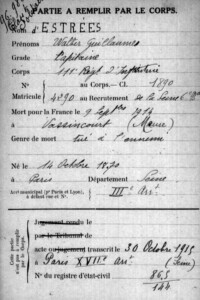 PARTIE A REMPLIR PAR LE CORPS.
Nom D'ESTRÉES
Prénoms Walter Guillaume
Grade Capitaine
Régt d'Infanterie
N° au Corps. — Cl. 1890
Matricule 4390 au Recrutement de la Seine
Mort pour la France le 9 Septbre 1914
à Vassincourt (Meuse)
Genre de mort tué à l'ennemi
Né le 14 Octobre 1870
à Paris Département Seine
Arrt municipal (pr Paris et Lyon), à défaut rue et N°. IIIe Arrt
Cette partie n'est pas à remplir par le Corps.
Jugement rendu le
par le Tribunal de
acte ou jugement transcrit le 30 Octobre 1915
à Paris XVIIe Arrt (Seine)
N° du registre d'état-civil
144